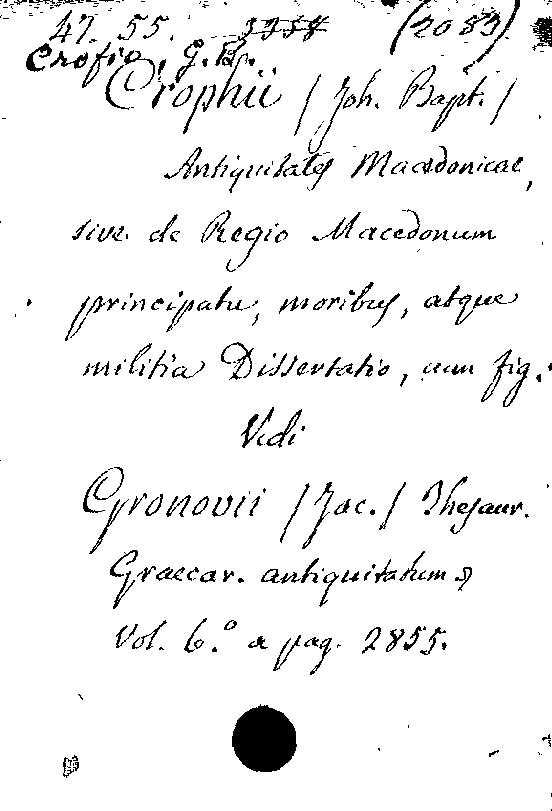 47. 55. (2083)
Crofio, G. B.
Crophii / Joh. Bapt. /
Antiquitates Macedonicae,
sive de Regio Macedonum
principatu, moribus, atque
militia Dissertatio, cum fig.
Vedi
Gronovii / Jac. / Thesaur.
Graecar. antiquitatum
Vol. 6.º a pag. 2855.